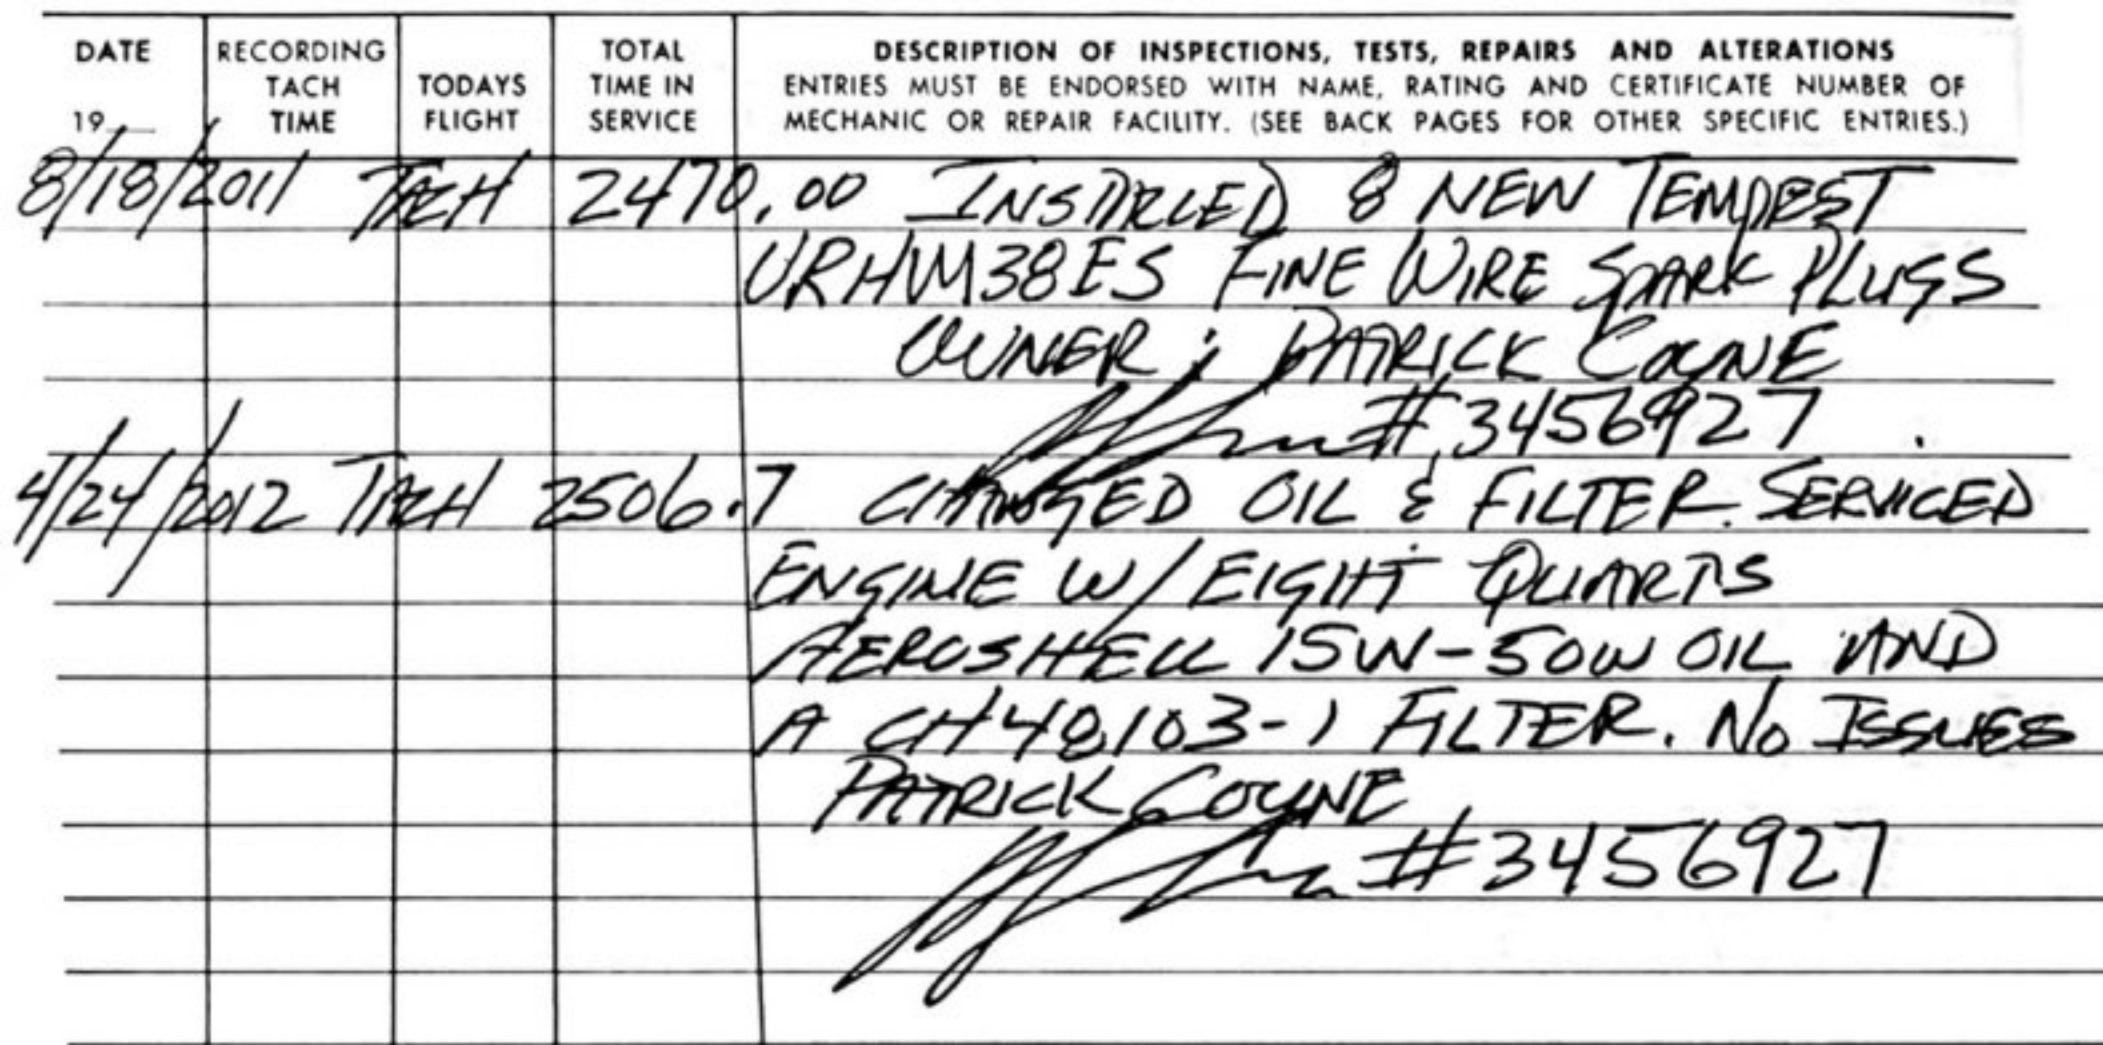 DATE
19
RECORDING
TACH
TIME
TODAYS
FLIGHT
TOTAL
TIME IN
SERVICE
DESCRIPTION OF INSPECTIONS, TESTS, REPAIRS AND ALTERATIONS
ENTRIES MUST BE ENDORSED WITH NAME, RATING AND CERTIFICATE NUMBER OF
MECHANIC OR REPAIR FACILITY. (SEE BACK PAGES FOR OTHER SPECIFIC ENTRIES.)
8/18/2011 TACH 2470.00 INSTALLED 8 NEW TEMPEST
URHM38ES FINE WIRE SPARK PLUGS
OWNER: PATRICK COYNE
#3456927
4/24/2012 TACH 2506.7 CHANGED OIL & FILTER. SERVICED
ENGINE W/EIGHT QUARTS
AEROSHELL 15W-50W OIL AND
A CH48103-1 FILTER. NO ISSUES
PATRICK COYNE
#3456927